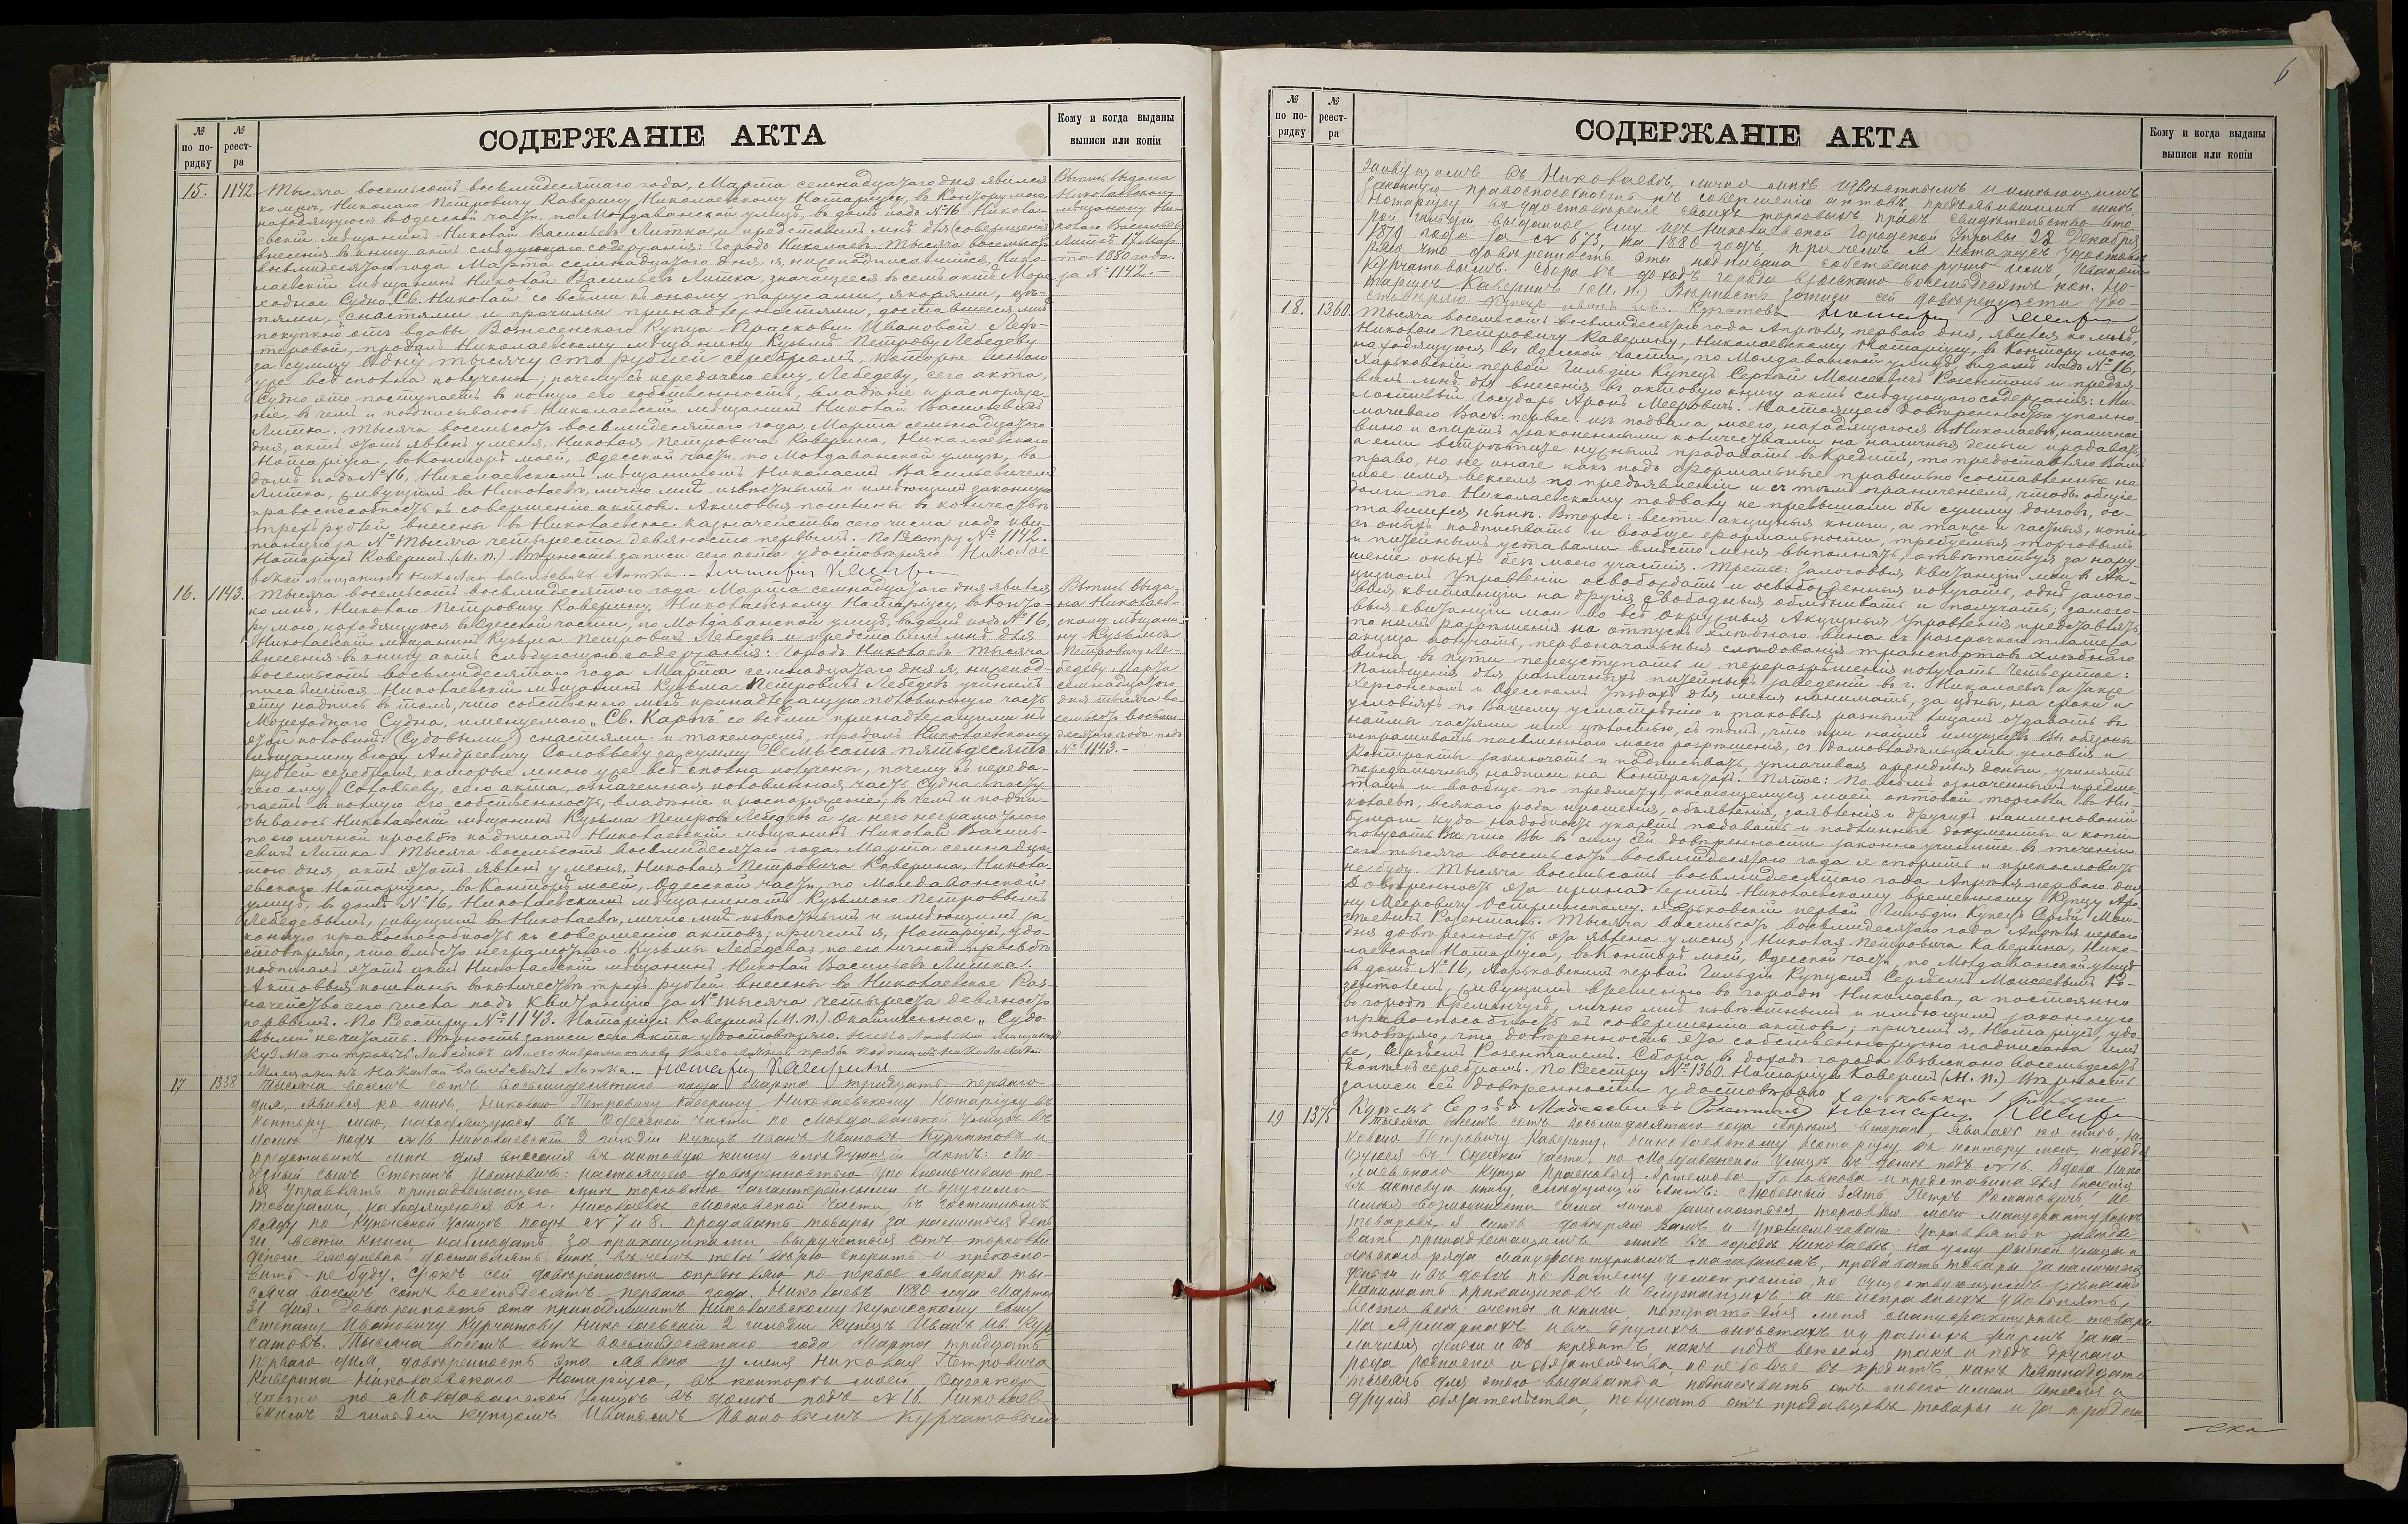 6
№ по по-рядку
№ реест-ра
СОДЕРЖАНІЕ АКТА
Кому и когда выданы выписи или копіи
15. 1142
Тысяча восемьсотъ восьмидесятаго года, Марта семнадцатаго дня явился
ко мнѣ, Николаю Петровичу Каверину, Николаевскому Нотаріусу, въ Контору мою,
находящуюся въ Одесской части, по Молдаванской улицѣ, въ домѣ подъ №16 Никола-
евскій мѣщанинъ Николай Васильевъ Литка и представилъ мнѣ для (совершенія)
внесенія въ книгу актъ слѣдующаго содержанія: Городъ Николаевъ. Тысяча восемьсотъ
восьмидесятаго года Марта семнадцатаго дня, я, нижеподписавшійся, Нико-
лаевскій мѣщанинъ Николай Васильевъ Литка, значащееся въ семъ актѣ Море-
ходное Судно „Св. Николай" со всѣми къ оному парусами, якорями, цѣ-
пями, снастями и прочими принадлежностями, доставшееся мнѣ
покупкой отъ вдовы Вознесенскаго Купца Прасковьи Ивановой Лефо-
теровой, продалъ Николаевскому мѣщанину Кузьмѣ Петрову Лебедеву
за сумму Одну тысячу сто рублей серебромъ, которые мною
уже всѣ сполна получены; почему съ передачею ему, Лебедеву, сего акта,
Судно это поступаетъ въ полную его собственность, владѣніе и распоряже-
ніе, въ чемъ и подписываюсь Николаевскій мѣщанинъ Николай Васильевъ
Литка. Тысяча восемьсотъ восьмидесятаго года Марта семнадцатаго
дня, актъ этотъ явленъ у меня, Николая Петровича Каверина, Николаевскаго
Нотаріуса, въ Конторѣ моей, Одесской части, по Молдаванской улицѣ, въ
домѣ подъ №16, Николаевскимъ мѣщаниномъ Николаемъ Васильевичемъ
Литка, живущимъ въ Николаевѣ, лично мнѣ извѣстнымъ и имѣющимъ законную
правоспособность къ совершенію актовъ. Актовыя пошлины въ количествѣ
трехъ рублей внесены въ Николаевское казначейство сего числа подъ кви-
танцію за № тысяча четыреста девяносто первымъ. По Реестру № 1142.
Нотаріусъ Каверинъ (М. П.) Вѣрность записи сего акта удостовѣряю Николае
вскай мищанинъ Николай Васильевичъ Литка. – Нотаріусъ Каверинъ
Выпись выдана
Николаевскому
мѣщанину Ни-
колаю Васильеву
Литкѣ 17 Мар-
та 1880 года.
за №1142.–
16. 1143.
Тысяча восемьсотъ восьмидесятаго года Марта семнадцатаго дня явился
ко мнѣ, Николаю Петровичу Каверину, Николаевскому Нотаріусу, въ Конто-
ру мою, находящуюся въ Одесской части, по Молдаванской улицѣ, въ домѣ подъ №16,
Николаевскій мѣщанинъ Кузьма Петровичъ Лебедевъ и представилъ мнѣ для
внесенія въ книгу актъ слѣдующаго содержанія: Городъ Николаевъ Тысяча
восемьсотъ восьмидесятаго года Марта семнадцатаго дня я, нижепод-
писавшійся Николаевскій мѣщанинъ Кузьма Петровичъ Лебедевъ учинилъ
сію надпись въ томъ, что собственно мнѣ принадлежащую половинную часть
Мореходнаго Судна, именуемаго „Св. Карпъ" со всѣми принадлежащими къ
этой половинѣ (Судовыми) снастями и такелажемъ, продалъ Николаевскому
мѣщанину Егору Андреевичу Соловьеву за сумму Семьсотъ пятьдесятъ
рублей серебромъ, которые мною уже всѣ сполна получены, почему съ переда-
чею ему, Соловьеву, сего акта, означенная половинная часть Судна посту-
паетъ въ полную его собственность, владѣніе и распоряженіе, въ чемъ и подпи-
сываюсь Николаевскій мѣщанинъ Кузьма Петровъ Лебедевъ а за него неграмотнаго
по его личной просьбѣ подписалъ Николаевскій мѣщанинъ Николай Василь-
евичъ Литка. Тысяча восемьсотъ восьмидесятаго года, Марта семнадца-
таго дня, актъ этотъ явленъ у меня, Николая Петровича Каверина, Никола-
евскаго Нотаріуса, въ Конторѣ моей, Одесской части, по Молдаванской
улицѣ, въ домѣ №16, Николаевскимъ мѣщаниномъ Кузьмою Петровымъ
Лебедевымъ, живущимъ въ Николаевѣ, лично мнѣ извѣстнымъ и имѣющимъ за-
конную правоспособность къ совершенію актовъ; причемъ я, Нотаріусъ, удо-
стовѣряю, что вмѣсто неграмотнаго Кузьмы Лебедева, по его личной просьбѣ
подписалъ этотъ актъ Николаевскій мѣщанинъ Николай Васильевъ Литка.
Актовыя пошлины въ количествѣ трехъ рублей внесены въ Николаевское Каз-
начейство сего числа подъ Квитанцію за № тысяча четыреста девяносто
первымъ. По Реестру № 1143. Нотаріусъ Каверинъ (М. П.) Окаймленное „Судо-
выми не читать. Вѣрность записи сего акта удостовѣряю. Николаевскій мищанинъ
Кузма Литка. Нотаріусъ Каверинъ
Выпись выда-
на Николаев-
скому мѣщани-
ну Кузьмѣ
Петровичу Ле-
бедеву Марта
семнадцатаго
дня тысяча во-
семьсотъ восьми-
десятаго года подъ
№ 1143.–
17 1338
Тысяча восемь сотъ восьмидесятаго года Марта тридцать перваго
дня, явился ко мнѣ, Николаю Петровичу Каверину Николаевскому Нотаріусу въ
контору мою, находящуюся въ Одесской части по Молдаванской улицѣ въ
домѣ подъ №16 Николаевскій 2 гильдіи купецъ Иванъ Ивановъ Курчатовъ и
представилъ мнѣ для внесенія въ актовую книгу слѣдующій актъ: Лю-
безный сынъ Степанъ Ивановичъ: настоящею довѣренностью уполномочиваю те-
бя управлять принадлежащею мнѣ торговлею галантерейными и другими
товарами, находящеюся въ г. Николаевѣ Московской части, въ Гостинномъ
ряду по Купеческой улицѣ подъ №7 и 8. продавать товары за наличныя день-
ги, вести книги, наблюдать за прикащиками вырученныя отъ торговли
деньги ежедневно доставлять мнѣ, въ чемъ тебѣ вѣрю спорить и прекосло-
вить не буду. Срокъ сей довѣренности опредѣляю по первое Января ты-
сяча восемь сотъ восемьдесятъ перваго года. Николаевъ 1880 года Марта
31 дня. Довѣренность эта принадлежитъ Николаевскому купеческому сыну
Степану Ивановичу Курчатову Николаевскій 2 гильдіи купецъ Иванъ Ив. Кур
чатовъ. Тысяча восемь сотъ восьмидесятаго года Марта тридцать
перваго дня, довѣренность эта явлена у меня Николая Петровича
Каверина Николаевскаго Нотаріуса, въ конторѣ моей, Одесской
части по Молдаванской улицѣ въ домѣ подъ №16. Николаев-
скимъ 2 гильдіи купцомъ Иваномъ Ивановымъ Курчатовымъ
№ по по-рядку
№ реест-ра
СОДЕРЖАНІЕ АКТА
Кому и когда выданы выписи или копіи
живущимъ въ Николаевѣ, лично мнѣ извѣстнымъ и имѣющимъ
законную правоспособность къ совершенію актовъ предъявившимъ мнѣ,
Нотаріусу въ удостовѣреніе своихъ торговыхъ правъ свидѣтельство вто-
рой гильдіи выданное ему изъ Николаевской Городской Управы 22 Декабря
1879 года за №673, на 1880 годъ, причемъ я Нотаріусъ удостовѣ
ряю что довѣренность эта подписана собственноручно имъ, Иваномъ
Курчатовымъ. Сбора въ доходъ города взыскано восемьдесятъ коп. Но-
таріусъ Каверинъ (М. П.) Вѣрность записи сей довѣренности удо-
стовѣряю Купецъ Иванъ Ив. Курчатовъ Нотаріусъ Каверинъ
18. 1360.
Тысяча восемьсотъ восьмидесятаго года Апрѣля перваго дня, явился ко мнѣ,
Николаю Петровичу Каверину, Николаевскому Нотаріусу, въ Контору мою,
находящуюся въ Одесской части, по Молдаванской улицѣ, въ домѣ подъ №16,
Харьковскій первой Гильдіи Купецъ Сергѣй Моисеевичъ Розенталь и предъя-
вилъ мнѣ для внесенія въ актовую книгу актъ слѣдующаго содержанія: Ми-
лостивый Государь Аронъ Мееровичъ. Настоящею довѣренностью уполно-
мачиваю Васъ: первое: изъ подвала моего, находящагося въ Николаевѣ, наличное
вино и спиртъ узаконенными количествами на наличныя деньги продавать,
а если встрѣтите нужнымъ продавать въ кредитъ, то предоставляю Вамъ
право, но не иначе какъ подъ формальные правильно составленные на
мое имя векселя по предъявленіи и съ тѣмъ ограниченіемъ, чтобы общіе
долги по Николаевскому подвалу не превышали бы сумму долговъ, ос-
тавшихся нынѣ. Второе: вести акцизныя книги, а также и частныя, копіи
съ оныхъ подписывать и вообще формальности, требуемыя торговымъ
и питейнымъ уставами вмѣсто меня выполнять, отвѣтствуя за нару-
шеніе оныхъ безъ моего участія. Третье: залоговыя квитанціи мои въ Ак-
цизномъ Управленіи освобождать и освобожденныя получать, одни залого-
выя квитанціи на другія свободныя обмѣнивать и получать; залого-
выя квитанціи мои во всѣ Окружныя Акцизныя Управленія представлять,
по нимъ разрѣшенія на отпускъ хлѣбнаго вина съ разсрочкою платежа
акциза получать, первоначальныя слѣдованія транспортовъ хлѣбнаго
вина въ пути переуступать и переразрѣшенія получать. Четвертое:
Помѣщенія для различныхъ питейныхъ заведеній въ г. Николаевѣ а также
Херсонскомъ и Одесскомъ уѣздахъ для меня нанимать, за цѣны, на сроки и
условіяхъ по Вашему усмотрѣнію и таковыя разнымъ лицамъ отдавать въ
наймы частями или цѣлостью, съ тѣмъ, что при наймѣ имуществъ Вы обязаны
испрашивать письменнаго моего разрѣшенія, съ домовладѣльцами условія и
Контракты заключать и подписывать, уплачивая арендныя деньги, учинять
передаточныя надписи на Контрактахъ. Пятое: По всѣмъ означеннымъ предме-
тамъ и вообще по предмету, касающемуся моей оптовой торговли въ Ни-
колаевѣ, всякаго рода прошенія, объявленія, заявленія и другихъ наименованій
бумаги куда надобность укажетъ подавать и подлинные документы и копіи
получать. Все что Вы въ силу сей довѣренности законно учините въ теченіи
сего тысяча восемьсотъ восьмидесятаго года я спорить и прекословить
не буду. Тысяча восемьсотъ восьмидесятаго года Апрѣля перваго дня
Довѣренность эта принадлежитъ Николаевскому временному Купцу Аро-
ну Мееровичу Островскому. Харьковскій первой Гильдіи Купецъ Сергѣй Мои-
сѣевичъ Розенталь. Тысяча восемьсотъ восьмидесятаго года Апрѣля перваго
дня довѣренность эта явлена у меня, Николая Петровича Каверина, Нико-
лаевскаго Нотаріуса, въ Конторѣ моей, Одесской части, по Молдаванской улицѣ
въ домѣ №16, Харьковскимъ первой Гильдіи Купцомъ Сергѣемъ Моисеевымъ Ро-
зенталемъ, живущимъ временно въ городѣ Николаевѣ, а постоянно
въ городѣ Кременчугѣ, лично мнѣ извѣстнымъ и имѣющимъ законную
правоспособность къ совершенію актовъ; причемъ я, Нотаріусъ, удо-
стовѣряю, что довѣренность эта собственноручно подписана имъ
же, Сергѣемъ Розенталемъ. Сбора въ доходъ города взыскано восемьдесятъ
копѣекъ серебромъ. По Реестру №1360. Нотаріусъ Каверинъ (М. П.) Вѣрность
записи сей довѣренности удостовѣряю Харьковскій 1 гильдіи
Купецъ Сергѣй Моисеевичъ Розенталь Нотаріусъ Каверинъ
19 1375
Тысяча восемь сотъ восьмидесятаго года Апрѣля втораго, явилась ко мнѣ, Ни-
колаю Петровичу Каверину, Николаевскому Нотаріусу, въ контору мою, находя-
щуюся въ Одесской части, по Молдаванской улицѣ въ домѣ подъ №16. Вдова Нико-
лаевскаго купца Артемьева Головкова и представила для внесенія
въ актовую книгу, слѣдующій актъ: Любезный зять Петръ Романовичъ! Не
имѣя возможности сама лично заниматься торговлею моею Мануфактурныхъ
товаровъ, я симъ довѣряю Вамъ и уполномочиваю: Управлять и завѣды-
вать принадлежащимъ мнѣ въ городѣ Николаевѣ, на углу Рыбной улицы и
ряда мануфактурнымъ магазиномъ, продавать товары за наличныя
деньги и въ долгъ по Вашему усмотрѣнію, по существующимъ цѣнамъ
нанимать прикащиковъ и служащихъ а не исправныхъ увольнять,
вести всѣ счеты и книги, покупать для меня мануфактурные товары
на Ярмаркахъ и въ другихъ мѣстахъ изъ разныхъ фирмъ за на-
личныя деньги и въ кредитъ, какъ подъ векселя такъ и подъ другаго
рода росписки и обязательства, но не болѣе въ кредитъ, какъ пятнадцать
тысячъ для этого выдавать и подписывать отъ моего имени векселя и
другія обязательства, получать отъ продавцовъ товары и за продажи